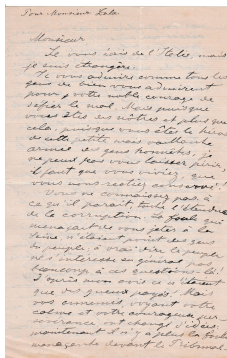 Pour Monsieur Zola
Monsieur
Je vous écris de l'Italie, mais
je suis étrangère.
Je vous admire comme tous les
gens de bien vous admirent
pour votre noble courage de
défier le mal. Mais puisque
vous êtes des nôtres et plus que
cela, puisque vous êtes le héros
de cette petite mais vaillante
armée des gens honnêtes, je
ne peux pas vous laisser périr,
il faut que vous viviez, que
vous nous restiez conservé!
Vous ne connaissez pas, à
ce qu'il paraît, toute l'étendue
de la corruption. La foule qui
menaçait de vous jeter à la
Seine n'étaient point des gens
du peuple, à vrai dire le peuple
ne s'intéresse en général pas
beaucoup à ces questions-là!
D'après mon avis ce n'étaient
que des gueux payés. Mais
vos ennemis, voyant votre
calme et votre courageuse per-
sévérance, ont changé d'idées;
maintenant il n'y a plus la foule
menaçante devant le Tribunal